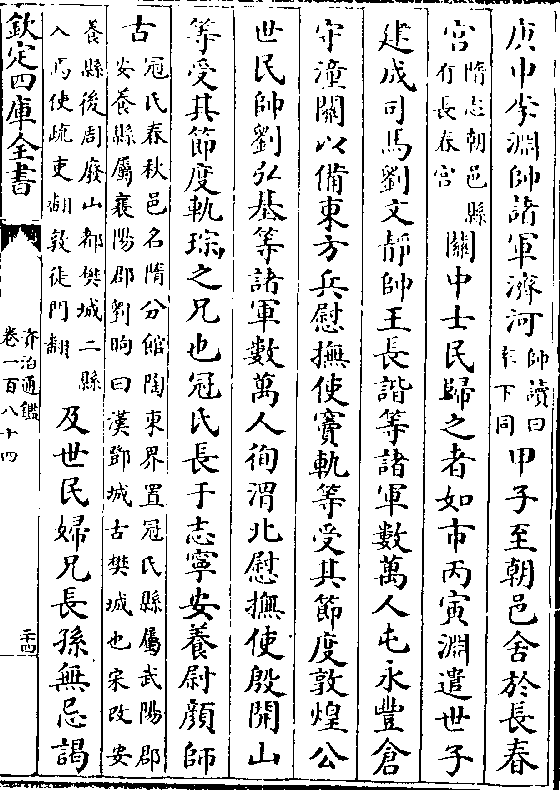 庚申李淵帥諸軍濟河帥讀曰下同甲子至朝邑舍於長春
宮隋志朝邑縣有長春宮關中士民歸之者如市丙寅淵遣世子
建成司馬劉文靜帥王長諧等諸軍數萬人屯永豐倉
守潼關以備東方兵慰撫使竇軌等受其節度敦煌公
世民帥劉弘基等諸軍數萬人徇渭北慰撫使殷開山
等受其節度軌琮之兄也冠氏長于志寧安養尉顔師
古冠氏春秋邑名隋分館陶東界置冠氏縣屬武陽郡安養縣屬襄陽郡劉昫曰漢鄧城古樊城也宋改安
養縣後周廢山都樊城二縣入焉使疏吏翻敦徒門翻及世民婦兄長孫無忌謁
欽定四庫全書
資治通鑑
卷一百八十四
二十四